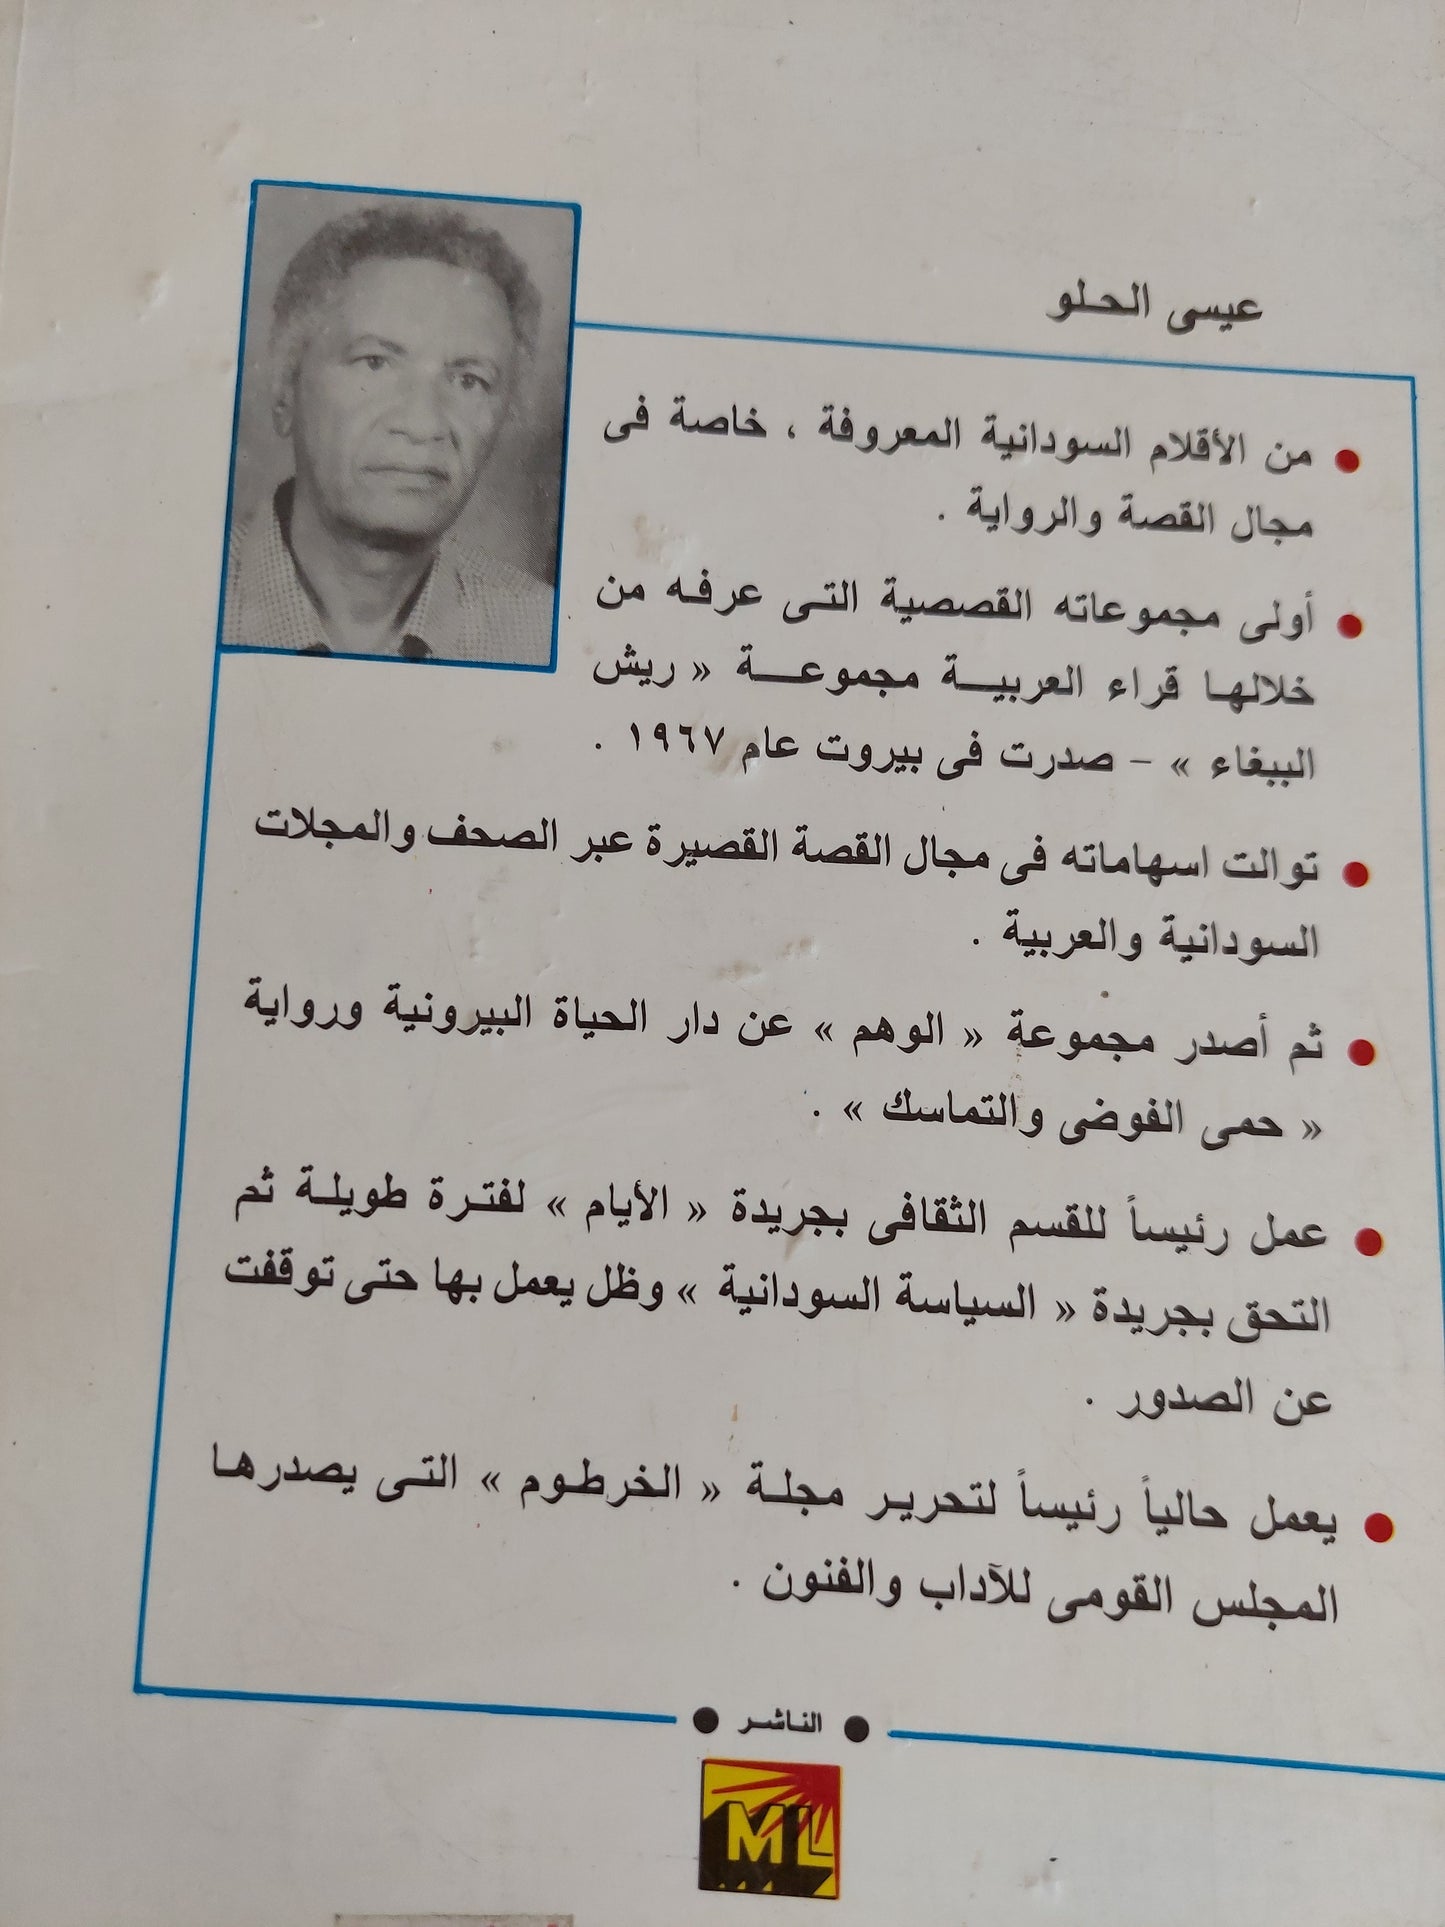 عيسى الحلو
من الأقلام السودانية المعروفة ، خاصة فى
مجال القصة والرواية .
أولى مجموعاته القصصية التى عرفه من
خلالها قراء العربية مجموعة « ريش
الببغاء » – صدرت فى بيروت عام ١٩٦٧ .
توالت اسهاماته فى مجال القصة القصيرة عبر الصحف والمجلات
السودانية والعربية .
ثم أصدر مجموعة « الوهم » عن دار الحياة البيرونية ورواية
« حمى الفوضى والتماسك » .
عمل رئيساً للقسم الثقافى بجريدة « الأيام » لفترة طويلة ثم
التحق بجريدة « السياسة السودانية » وظل يعمل بها حتى توقفت
عن الصدور .
يعمل حالياً رئيساً لتحرير مجلة « الخرطوم » التى يصدرها
المجلس القومى للآداب والفنون .
الناشر
ML